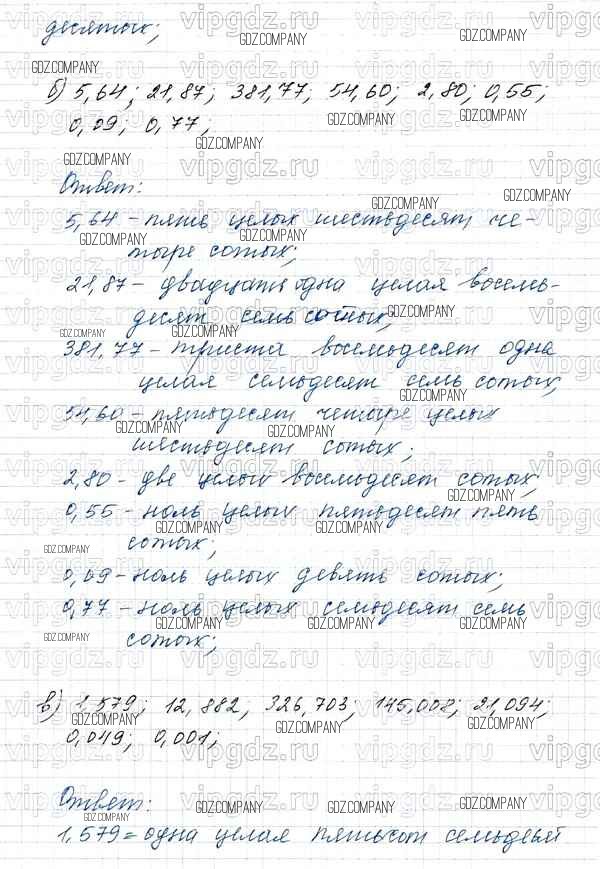 десятых;
б) 5,64; 21,87; 381,77; 54,60; 2,80; 0,55;
0,09; 0,77;
Ответ:
5,64 – пять целых шестьдесят че-
тыре сотых;
21,87 – двадцать одна целая восемь-
десят семь сотых;
381,77 – триста восемьдесят одна
целая семьдесят семь сотых;
54,60 – пятьдесят четыре целых
шестьдесят сотых;
2,80 – две целых восемьдесят сотых;
0,55 – ноль целых пятьдесят пять
сотых;
0,09 – ноль целых девять сотых;
0,77 – ноль целых семьдесят семь
сотых;
в) 1,579; 12,882; 326,703; 145,008; 21,094;
0,049; 0,001;
Ответ:
1,579 = одна целая пятьсот семьдесят
vipgdz.ru
GDZ.COMPANY